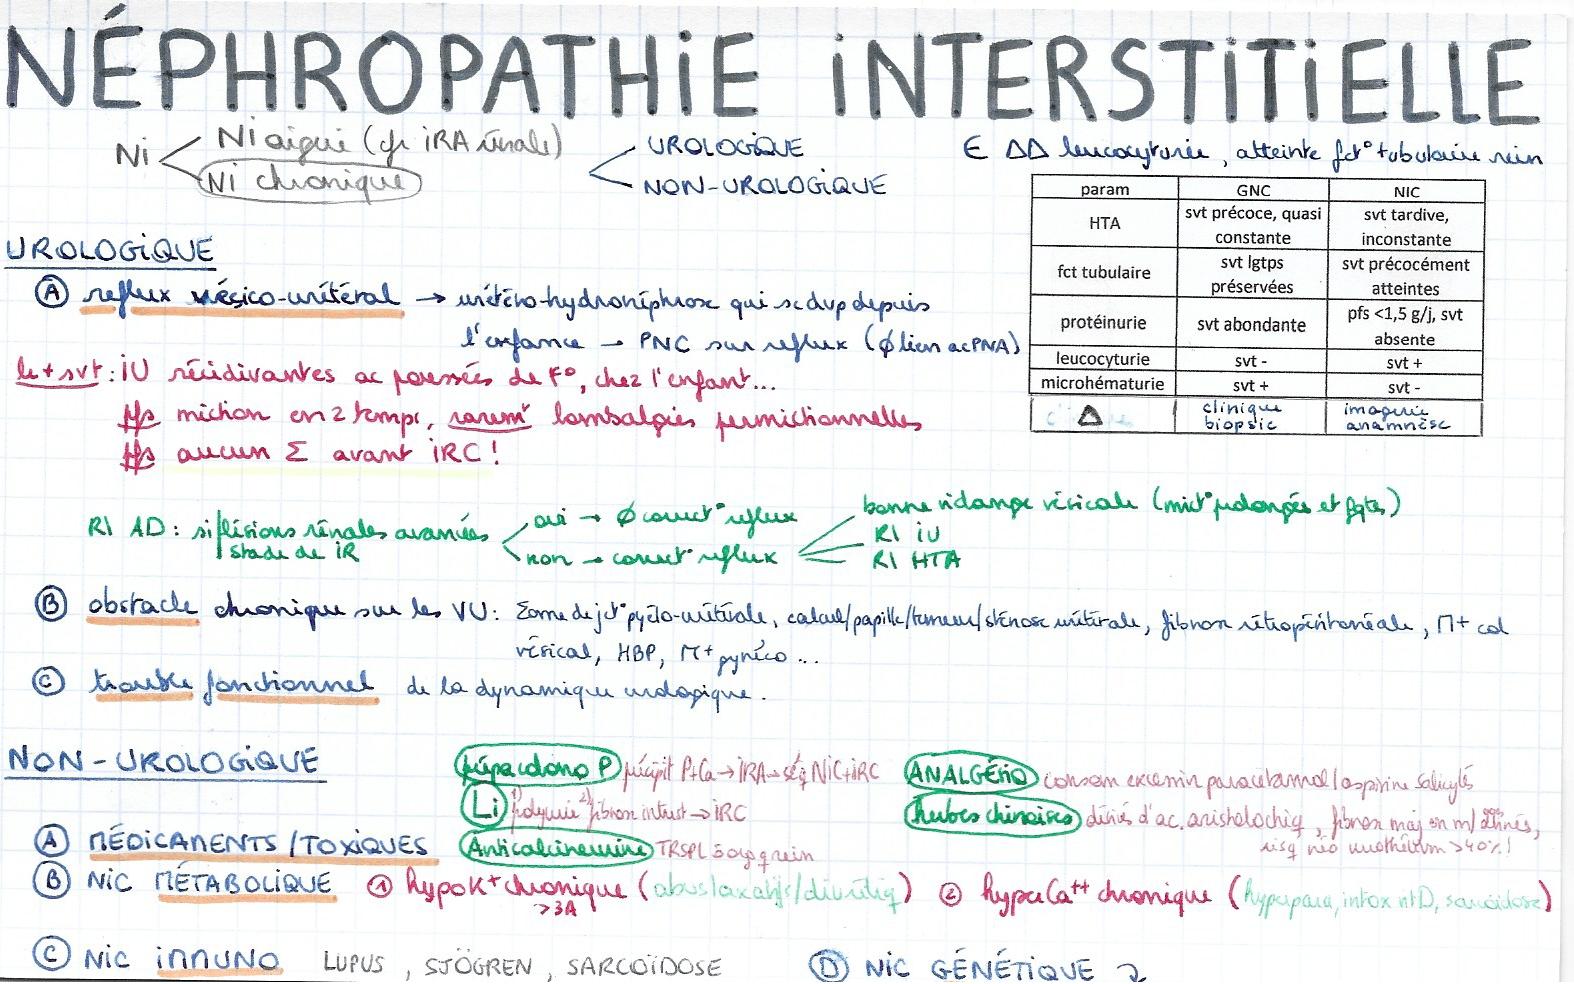 NÉPHROPATHiE iNTERSTiTiELLE
Ni
Ni aiguë (cfr iRA rénale)
Ni chronique
UROLOGiQUE
NON-UROLOGiQUE
∈ ΔΔ leucocyturie, atteinte fct° tubulaire rein
param GNC NIC
HTA svt précoce, quasi constante svt tardive, inconstante
fct tubulaire svt lgtps préservées svt précocément atteintes
protéinurie svt abondante pfs <1,5 g/j, svt absente
leucocyturie svt - svt +
microhématurie svt + svt -
Δ clinique biopsie imagerie anamnèse
UROLOGiQUE
Ⓐ reflux vésico-urétéral → urétéro-hydronéphrose qui se dvp depuis
l'enfance → PNC sur reflux (∅ lien ac PNA)
le + svt : iU récidivantes ac poussées de F°, chez l'enfant...
pfs miction en 2 temps, rarem^t lombalgies permictionnelles
pfs aucun Σ avant iRC !
R/ AD : si lésions rénales avancées
stade de iR
oui → ∅ correct° reflux
non → correct° reflux
bonne vidange vésicale (mict° prolongées et fqtes)
R/ iU
R/ HTA
Ⓑ obstacle chronique sur les VU : Σome de jct° pyélo-urétérale, calcul/papille/tumeur/sténose urétérale, fibrose rétropéritonéale, M+ col
vésical, HBP, M+ gynéco ...
Ⓒ trouble fonctionnel de la dynamique urologique.
NON-UROLOGiQUE
prépa colono P précipit P+Ca → iRA → séq NiC+iRC
ANALGÉSiq consom excess min paracétamol/aspirine salicylés
Li 1) polyurie 2) fibrose interst → iRC
herbes chinoises dérivés d'ac. aristolochiq, fibrose maj en m/années,
risq néo urothélium >40%!
Anticalcineurine TRSPL 5 org q rein
Ⓐ MÉDICAMENTS/TOXiQUES
Ⓑ NiC MÉTABOLiQUE ① hypoK+ chronique (abus laxatifs/diurétiq) ② hyperCa++ chronique (hyperpara, intox vitD, sarcoïdose)
>3A
Ⓒ NiC iMMUNO LUPUS, SJÖGREN, SARCOÏDOSE
Ⓓ NiC GÉNÉTiQUE